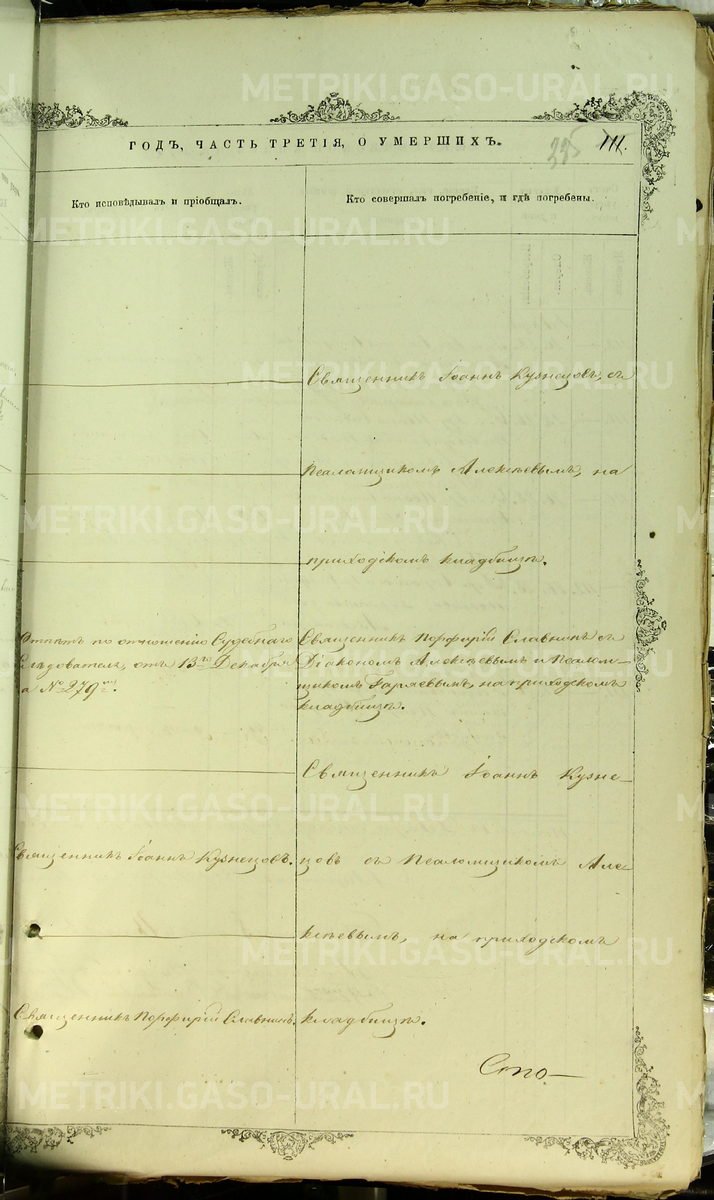 METRIKI.GASO-URAL.RU
ГОДЪ, ЧАСТЬ ТРЕТІЯ, О УМЕРШИХЪ.
335
111.
Кто исповѣдывалъ и пріобщалъ.
Кто совершалъ погребеніе, и гдѣ погребены.
Священникъ Іоаннъ Кузнецовъ, съ
Псаломщикомъ Алексѣевымъ, на
приходскомъ кладбищѣ.
Отпѣтъ по отношенію Судебнаго
Слѣдователя, отъ 13го Декабря
за №279мъ.
Священникъ Порфирій Славнинъ съ
Діакономъ Алексѣевымъ и Псалом-
щикомъ на приходскомъ
кладбищѣ.
Священникъ Іоаннъ Кузне-
Священникъ Іоаннъ Кузнецовъ.
цовъ съ Псаломщикомъ Але-
ксѣевымъ, на приходскомъ
Священникъ Порфирій Славнинъ.
кладбищѣ.
Сто-